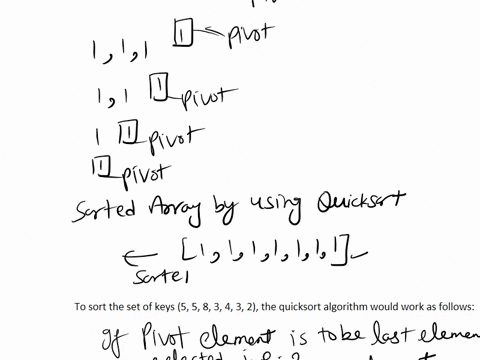 1, 1, 1 1 ← pivot
1, 1 1 pivot
1 1 pivot
1 pivot
Sorted Array by using Quicksort
← [1, 1, 1, 1, 1, 1, 1]
To sort the set of keys (5, 5, 8, 3, 4, 3, 2), the quicksort algorithm would work as follows:
If Pivot element is to be last elemen